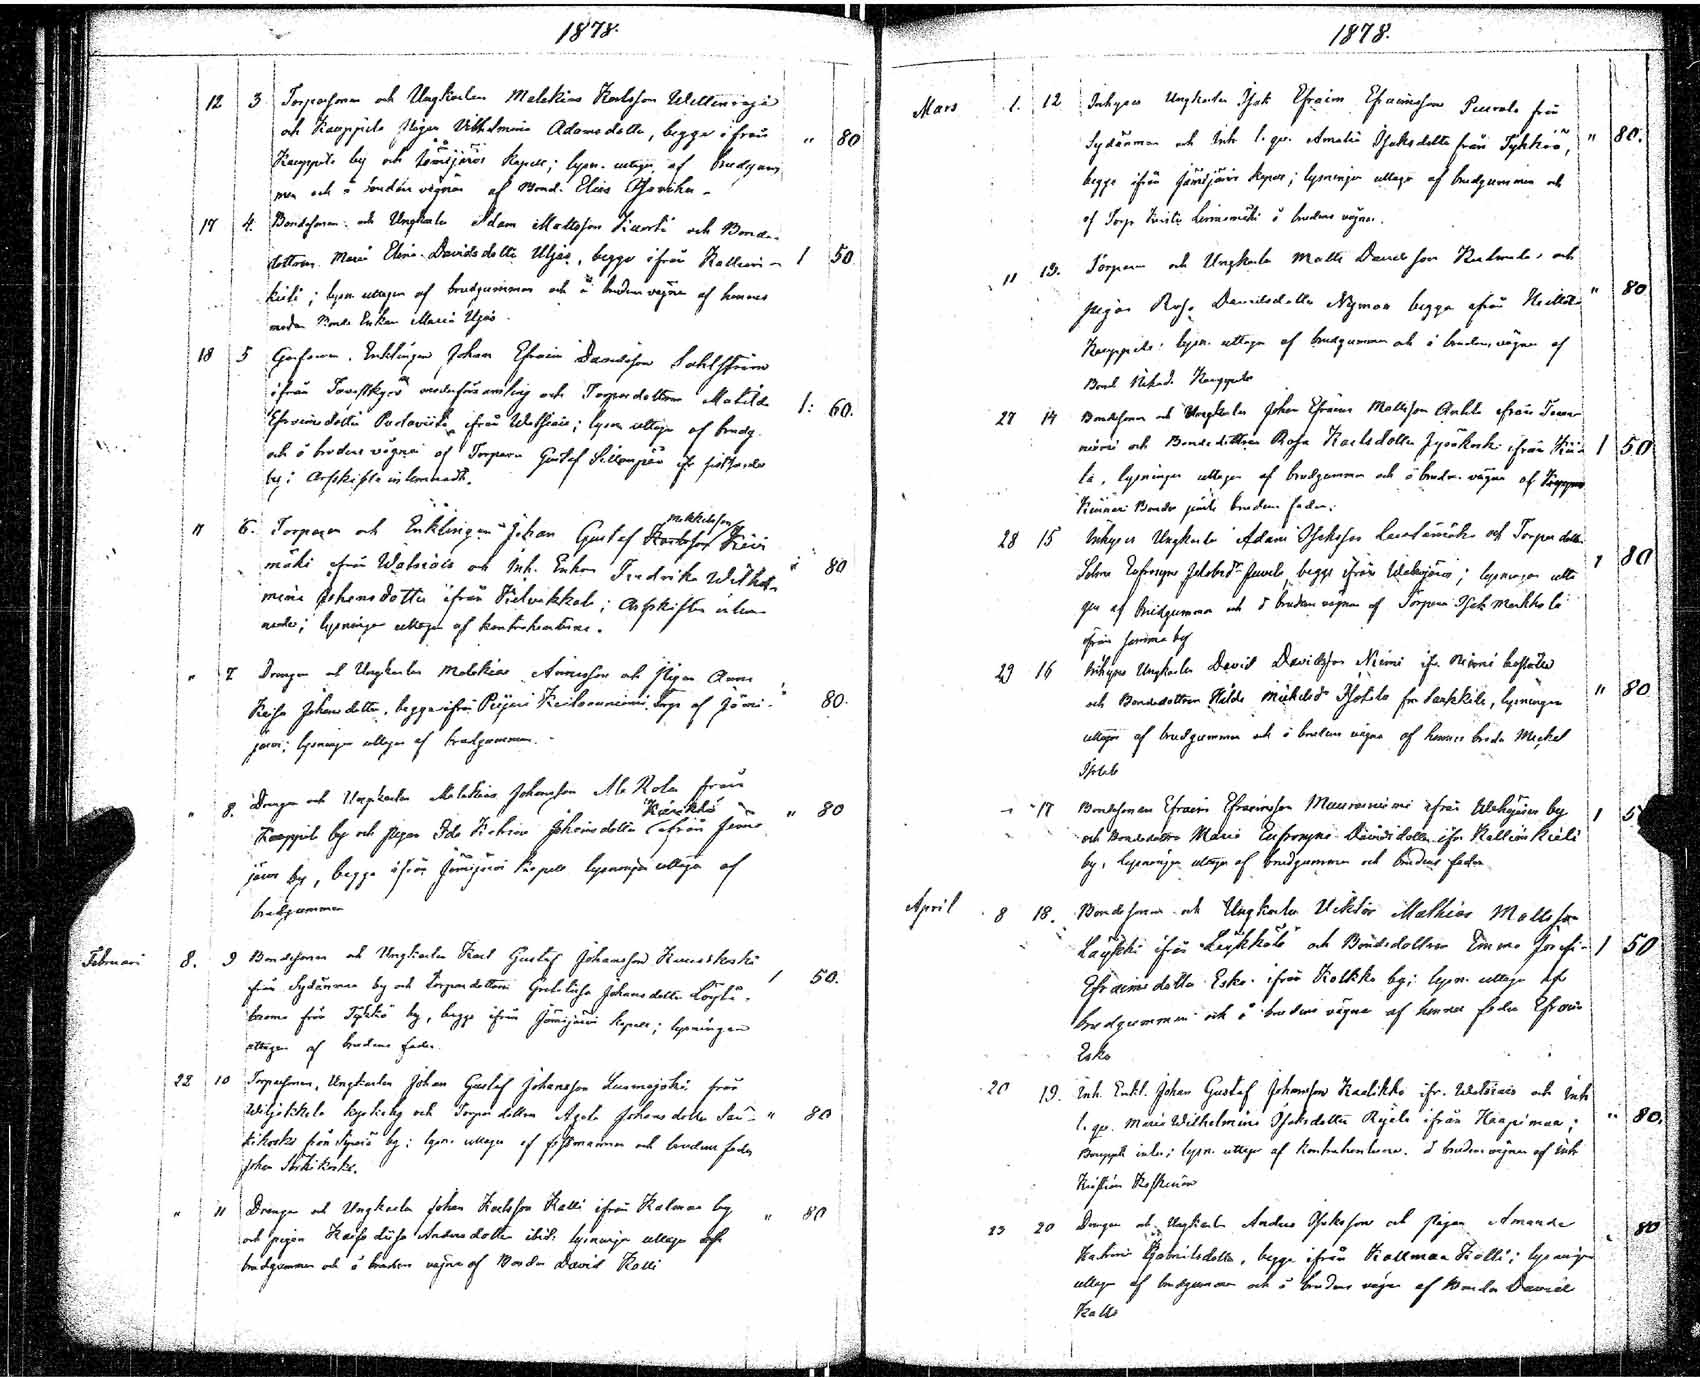 1878.
12 3 Torparsonen och Ungkarlen Malakias Karlsson Wettenranja
och Kauppila Pigan Vilhelmina Adamsdotter, begge ifrån " 80
Kauppila by och Jämijärvi Kapell; lysn. uttagen af brudgum
men och å brudens vägnar af Bond. Elias
17 4. Bondesonen och Ungkarlen Adam Mattsson Kuorti och Bonde-
dottren Maria Elina Davidsdotter Uljas, begge ifrån Kallion- 1 50
kieli; lysn. uttagen af brudgummen och å brudens vägnar af hennes
moder Bonde Enkan Maria Uljas.
18 5 Enklingen Johan Efraim Davidsson Sahlström
ifrån Tavastkyrö moderförsamling och Torparedottren Matilda 1: 60.
Efraimsdotter ifrån Watsiais; lysn. uttagen af brudg.
och å brudens vägnar af Torparen Gustaf Sillanpää
by; Arfskifte inlemnadt.
" 6. Torparen och Enklingen Johan Gustaf Karlsson Mikkelsson Kivi
mäki ifrån Watsiais och Inh. Enkan Fredrika Wilhel- " 80
mina Johansdotter ifrån Vilvakkala; Arfskiften inlem
nades; lysningen uttagen af kontrahenterna.
" 7 Drengen och Ungkarlen Malakias Anianson och Pigan Anna
Kaisa Johansdotter, begge ifrån Peijari Keilanniemi Torp af Jämi- " 80.
järvi; lysningen uttagen af brudgummen.
" 8. Drengen och Ungkarlen Malakias Johansson Ala Rola från
Kauppila by och Pigan Ida Kristina Johansdotter Kärikkö ifrån Jämi " 80
järvi by, begge ifrån Jämijärvi Kapell lysningen uttagen af
brudgummen
Februari 8. 9 Bondesonen och Ungkarlen Karl Gustaf Johansson Kuuskoski
från Sydänmaa by och Torparedottren Greta Lisa Johansdotter Löytö- 1 50.
från Tykkö by, begge ifrån Jämijärvi Kapell; lysningen
uttagen af brudens fader.
22 10 Torparsonen, Ungkarlen Johan Gustaf Johansson Luomajoki från
Wiljakkala Kapell och Torparedottren Agata Johansdotter Sär- " 80
kikoski från by; lysn. uttagen af fästmannen och brudens fader
Johan Särkikoski.
" 11 Drengen och Ungkarlen Johan Karlsson Kalli ifrån Kalmaa by
och pigan Kaisa Lisa Andersdotter ibid: lysningen uttagen af " 80
brudgummen och å brudens vägnar af Bonden David Kalli
1878.
Mars 1. 12 Inhyses Ungkarlen Isak Efraim Efraimsson Peurala från
Sydänmaa och Inh. l. qv. Amalia Isaksdotter från Tykköö, " 80.
begge ifrån Jämijärvi Kapell; lysningen uttagen af brudgummen och
af Torp. Leinimäki å brudens vägnar.
11 13. Torparen och Ungkarlen Matts Davidsson Kulmala och
pigan Rosa Davidsdotter Nyman begge ifrån " 80
Kauppila: lysn. uttagen af brudgummen och å brudens vägnar af
Bond Kauppila
27 14 Bondesonen och Ungkarlen Johan Efraim Mattsson Anttila ifrån
niemi och Bondedottren Rosa Karlsdotter Jyväkorki ifrån Kiia- 1 50
la, lysningen uttagen af brudgummen och å brudens vägnar af
Kinnari Bonde jemte brudens fader.
28 15 Inhyses Ungkarlen Adam Isaksson och Torparedotter
Sabina Eufrosyne Jakobsdr Juvela, begge ifrån Ulakojärvi; lysningen utta " 80
gen af Brudgummen och å brudens vägnar af Torparen Isak Markkola
ifrån samma by
29 16 Inhyses Ungkarlen David Davidsson Niemi ifr. Niemi boställe
och Bondedottren Hilda Mickelsdr Isotalo fr. Sarkkila, lysningen " 80
uttagen af brudgummen och å brudens vägnar af hennes broder Mickel
Isotalo
" 17 Bondesonen Efraim Efraimsson Mauraniemi ifrån by
och Bondedottren Maria Eufrosyne Davidsdotter ifr. Kallionkieli 1 5
by, lysningen uttagen af brudgummen och brudens fader
April 8 18. Bondesonen och Ungkarlen Viktor Mathias Mattsson
Läykki ifrån Leÿkkälä och Bondedottren Emma Josefi- 1 50
Efraimsdotter Esko ifrån Kolkko by; lysn. uttagen af
brudgummen och å brudens vägnar af hennes fader Efraim
Esko
20 19. Inh. Enkl. Johan Gustaf Johansson Kaalikko ifr. Watsiais och Inh
l. qv. Maria Wilhelmina Isaksdotter Rajala ifrån Haapimaa; " 80.
Bouppt. inlem; lysn. uttagen af kontrahenterna. å brudens vägnar af Inh
Kristian Koskinen
23 20 Drengen och Ungkarlen Anders Isaksson och pigan Amanda
Katrina Gabrielsdotter, begge ifrån Kallmaa Kalli; lysningen " 80
uttagen af brudgummen och å brudens vägnar af Bonden David
Kalli